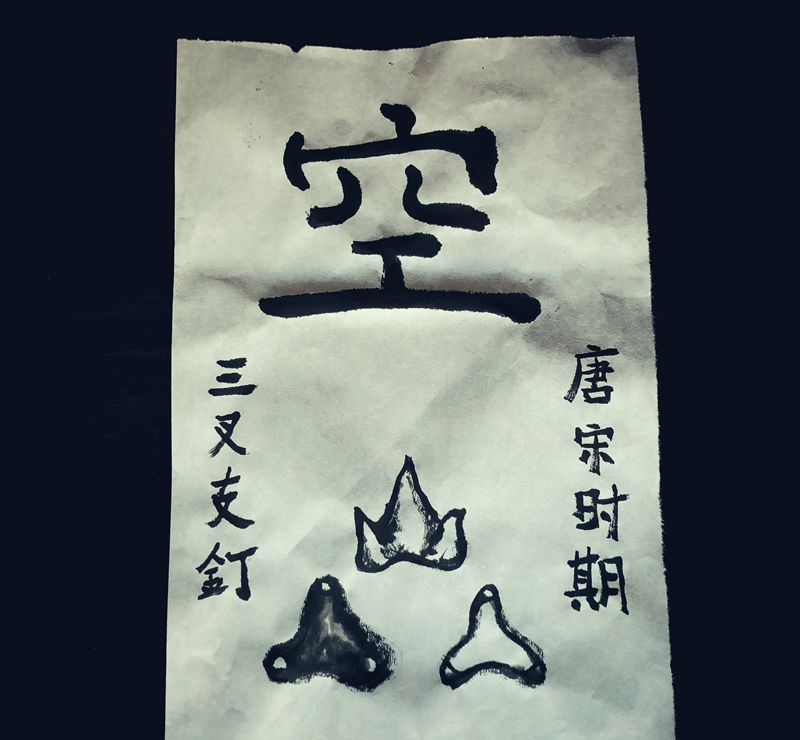 空
唐宋时期
三叉支釘